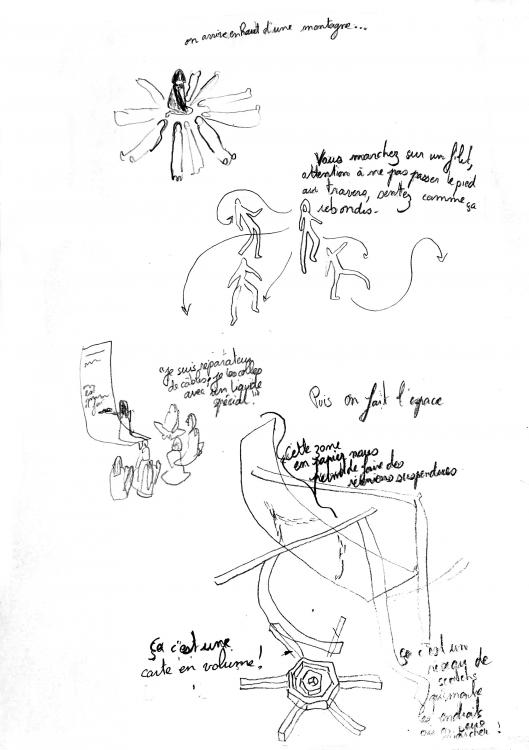 on arrive en haut d'une montagne...
Vous marchez sur un filet,
attention à ne pas passer le pied
au travers, sentez comme ça
rebondis.
"je suis réparateur
de câbles, je les colles
avec un liquide
spécial"
Puis on fait l'espace
Cette zone
en papier nous
permet de faire des
réunions suspendues
ça c'est une
carte en volume!
ça c'est un
réseau de
scotchs
qui montre
les endroits
où
marcher!